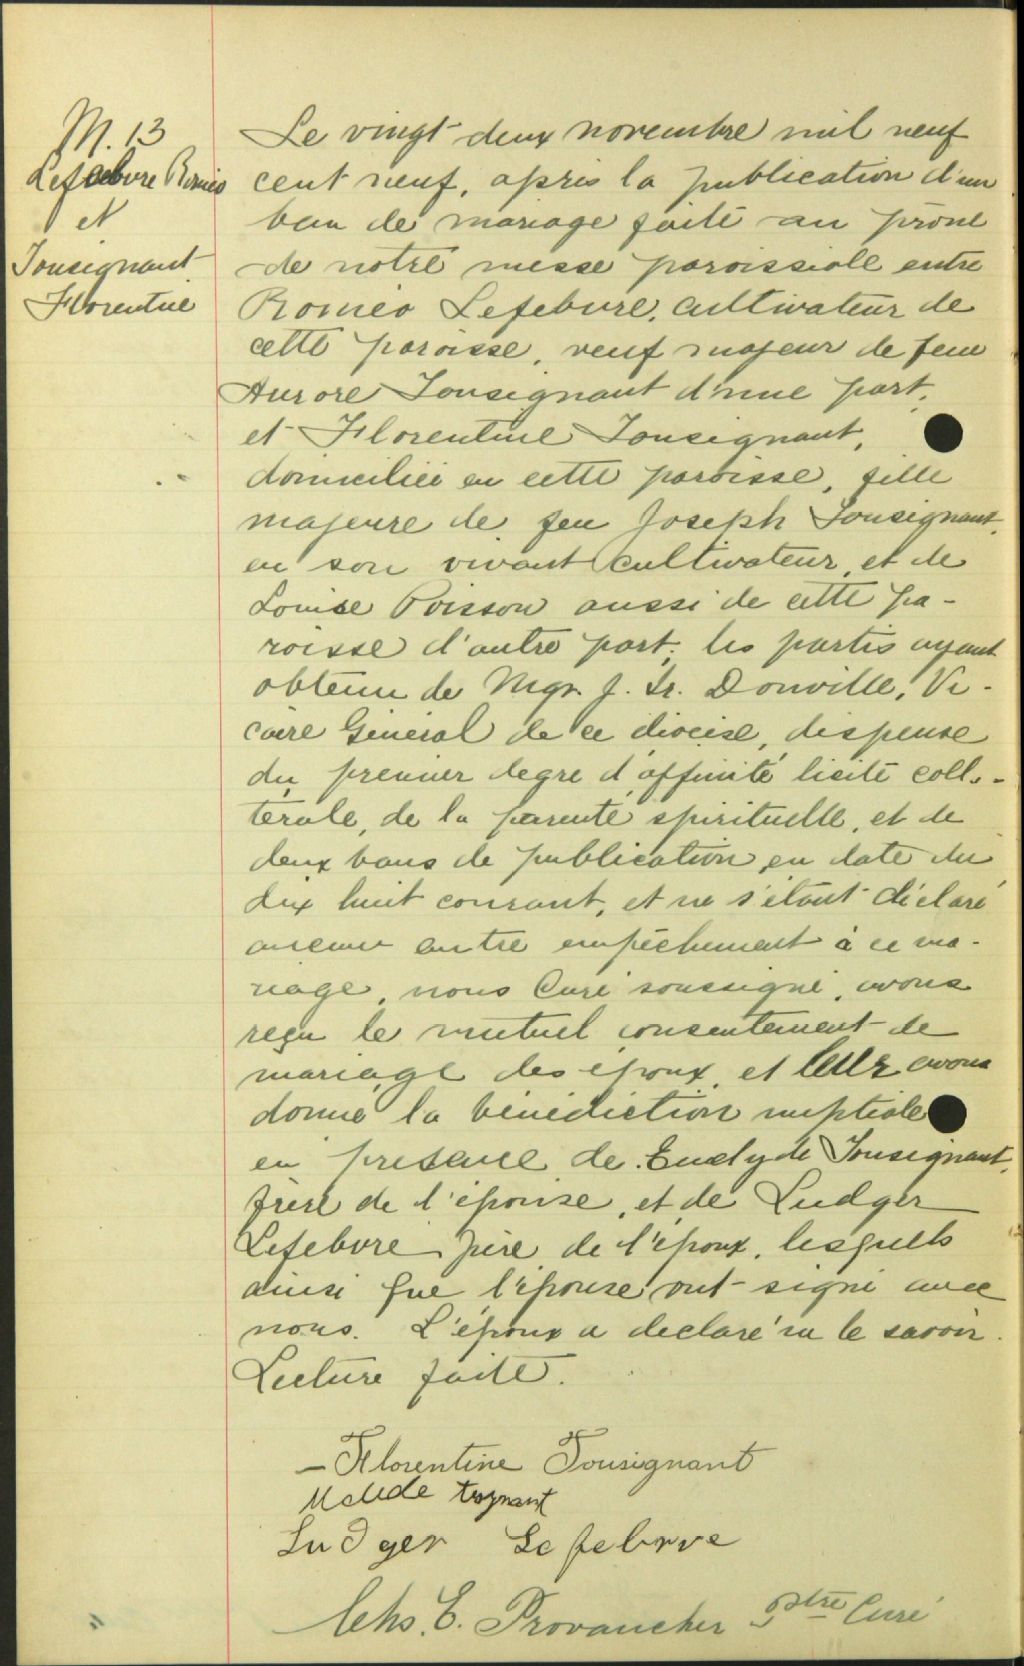 M. 13
Lefebvre Roméo
et
Tousignant
Florentine
Le vingt-deux novembre mil neuf
cent neuf, après la publication d'un
ban de mariage faite au prône
de notre messe paroissiale entre
Roméo Lefebvre, cultivateur de
cette paroisse, veuf majeur de feue
Aurore Tousignant d'une part,
et Florentine Tousignant,
domiciliée en cette paroisse, fille
majeure de feu Joseph Tousignant,
en son vivant cultivateur, et de
Louise Poisson aussi de cette pa-
roisse d'autre part; les parties ayant
obtenu de Mgr. J. Ir. Douville, Vi-
caire Général de ce diocèse, dispense
du premier degré d'affinité licite coll-
térale, de la parenté spirituelle, et de
deux bans de publication en date du
dix huit courant, et ne s'étant déclaré
aucun autre empêchement à ce ma-
riage, nous Curé soussigné, avons
reçu le mutuel consentement de
mariage des époux, et leur avons
donné la bénédiction nuptiale
en présence de Tousignant,
frère de l'épouse, et de Ludger
Lefebvre père de l'époux, lesquels
ainsi que l'épouse ont signé avec
nous. L'époux a déclaré ne le savoir.
Lecture faite.
– Florentine Tousignant
Ludger Lefebvre
Chs. E. Provancher Ptre Curé